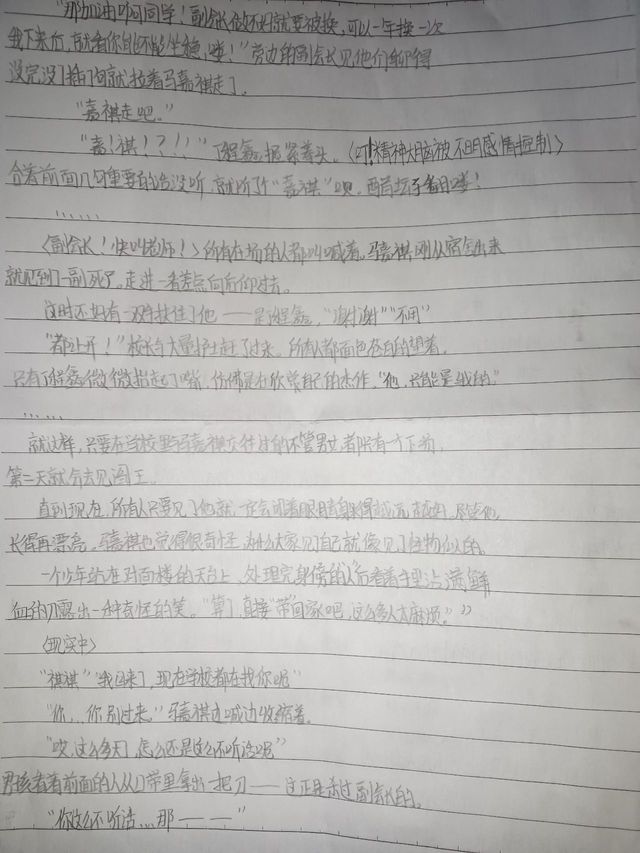 "那加油叭同学！副会长做不好就要被换，可以一年换一次
我下来后，就看你能不能坐稳，喽！"旁边的副会长见他们聊得
没完没了插了句就拉着马嘉祺走了。
"嘉祺走吧。"
"嘉！祺！？！！"丁程鑫握紧拳头。〈叮！精神大脑被不明感情控制〉
合着前面几句重要的话没听，就听了个"嘉祺"呗。醋坛子翻喽！
……
〈副会长！快叫老师！〉所有在场的人都叫喊着。马嘉祺刚从宿舍出来
就见到了一副死尸。走进一看差点向后仰过去。
这时还好有一双手扶住了他——是丁程鑫，"谢谢""不用"
"都让开！"校长与大量护士赶了过来。所有人都面色苍白的望着。
只有丁程鑫微微抬起了嘴，仿佛是在欣赏自己的杰作，"他，只能是我的"
……
就这样，只要在学校里与马嘉祺交往过的不管男女都只有一个下场，
第二天就会去见阎王。
直到现在，所有人只要见了他就一定会闭着眼睛躲得越远越好。尽管他
长得再漂亮。马嘉祺也觉得很奇怪，为什么大家见自己就像见了怪物似的
一个少年站在对面楼的天台上，处理完身傍的人后看着手里沾满鲜
血的刀露出一种奇怪的笑。"算了，直接"带回家吧，这么多人太麻烦。"
〈现实中〉
"祺祺""我回来了，现在学校都在找你呢"
"你，你别过来，"马嘉祺边喊边收缩着。
"哎，这么多天了，怎么还是这么不听话呢"
男孩看着前面的人从口袋里拿出一把刀——这正是杀过副会长的。
"你这么不听话…那——"